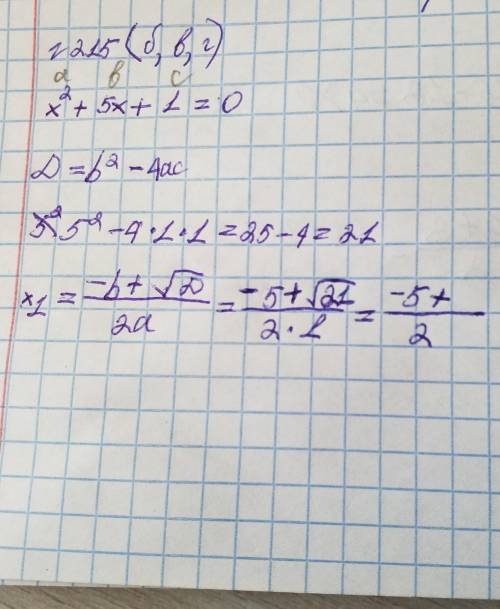 №215 (б, в, г)
a в c
x² + 5x + 1 = 0
D = b² - 4ac
5² - 4 · 1 · 1 = 25 - 4 = 21
x1 = (-b + √D)/(2a) = (-5 + √21)/(2 · 1) = (-5 +)/2